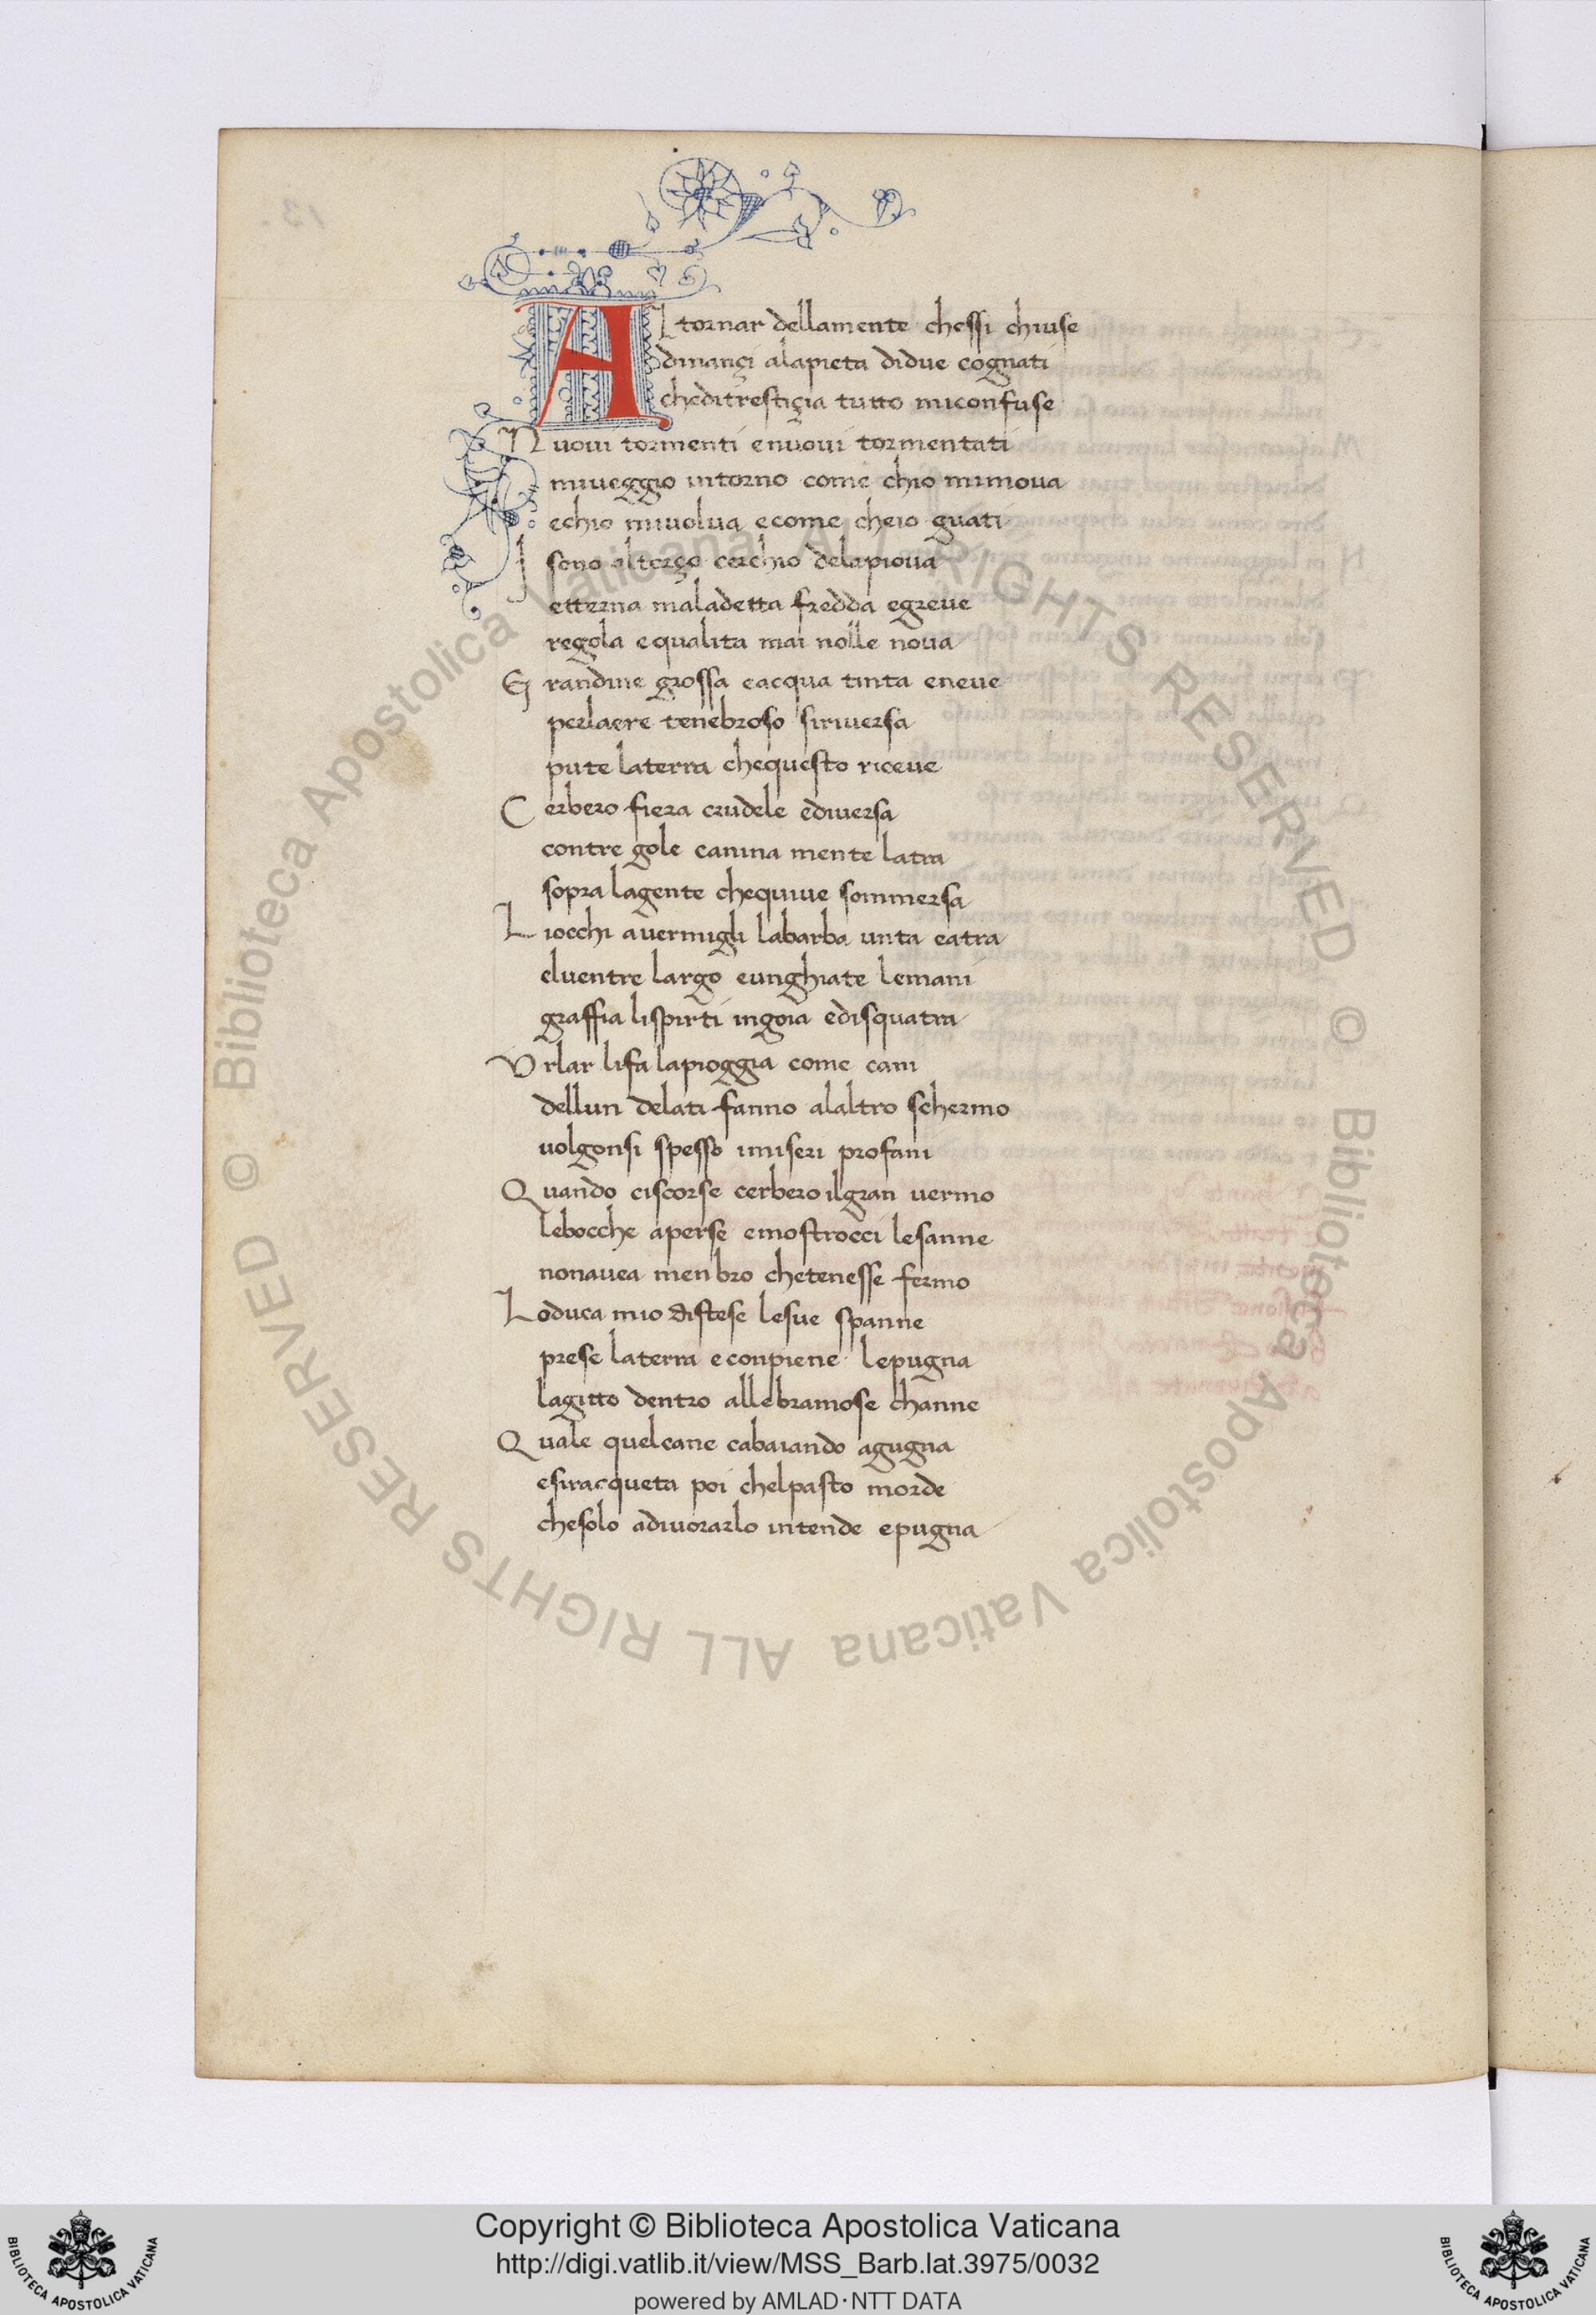 Al tornar dellamente chessi chiuse
dinançi alapieta didue cognati
cheditrestiçia tutto miconfuse
Nuovi tormenti enuovi tormentati
miveggio intorno come chio mimova
echio mivolva ecome cheio guati
I sono alterço cerchio delapiova
etterna maladetta fredda egreve
regola equalita mai nolle nova
Grandine grossa eacqua tinta eneve
perlaere tenebroso siriversa
pute laterra chequesto riceve
Cerbero fiera crudele ediversa
contre gole canina mente latra
sopra lagente chequive sommersa
Liocchi avermigli labarba unta eatra
elventre largo eunghiate lemani
graffia lispirti ingoia edisquatra
Urlar lifa lapioggia come cani
dellun delati fanno alaltro schermo
volgonsi spesso imiseri profani
Quando ciscorse cerbero ilgran vermo
lebocche aperse emostrocci lesanne
nonavea menbro chetenesse fermo
Loduca mio distese lesue spanne
prese laterra econpiene lepugna
lagitto dentro allebramose channe
Quale quelcane cabaiando agugna
esiracqueta poi chelpasto morde
chesolo adivorarlo intende epugna
© Biblioteca Apostolica Vaticana ALL RIGHTS RESERVED © Biblioteca Apostolica Vaticana ALL RIGHTS RESERVED
Copyright © Biblioteca Apostolica Vaticana
http://digi.vatlib.it/view/MSS_Barb.lat.3975/0032
powered by AMLAD·NTT DATA
BIBLIOTECA APOSTOLICA VATICANA
BIBLIOTECA APOSTOLICA VATICANA